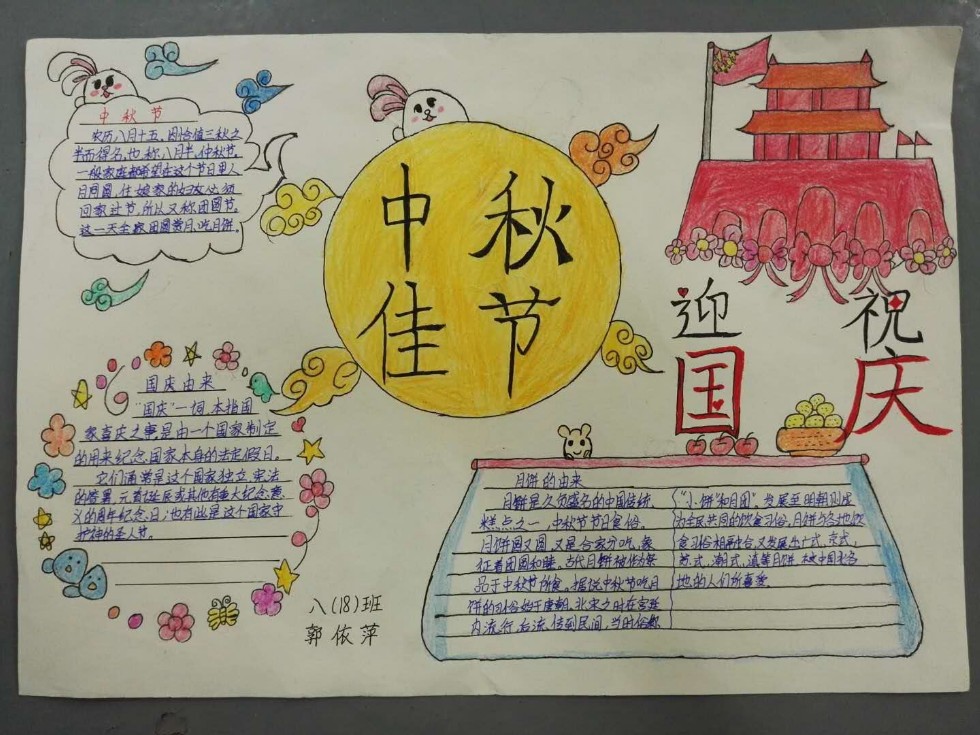 中秋节
农历八月十五,因恰值三秋之
半而得名,也称八月半,仲秋节。
一般家庭都希望在这个节日里人
月同圆,住娘家的妇女必须
回家过节,所以又称团圆节。
这一天全家团圆赏月、吃月饼。
中秋
佳节
迎祝
国庆
国庆由来
"国庆"一词,本指国
家喜庆之事是由一个国家制定
的用来纪念国家本身的法定假日。
它们通常是这个国家独立、宪法
的签署、元首诞辰或其他有重大纪念意
义的周年纪念日;也有些是这个国家守
护神的圣人节。
八(18)班
郭依萍
月饼的由来
月饼是久负盛名的中国传统
糕点之一,中秋节节日食俗。
月饼圆又圆,又是合家分吃,象
征着团圆和睦,古代月饼被作为祭
品于中秋节所食。据说中秋节吃月
饼的习俗始于唐朝,北宋之时在宫廷
内流行,后流传到民间,当时俗称
"小饼"和"月团"。发展至明朝则成
为全民共同的饮食习俗,月饼与各地饮
食习俗相融合,又发展出广式、京式、
苏式、潮式、滇等月饼
地的人们所喜爱